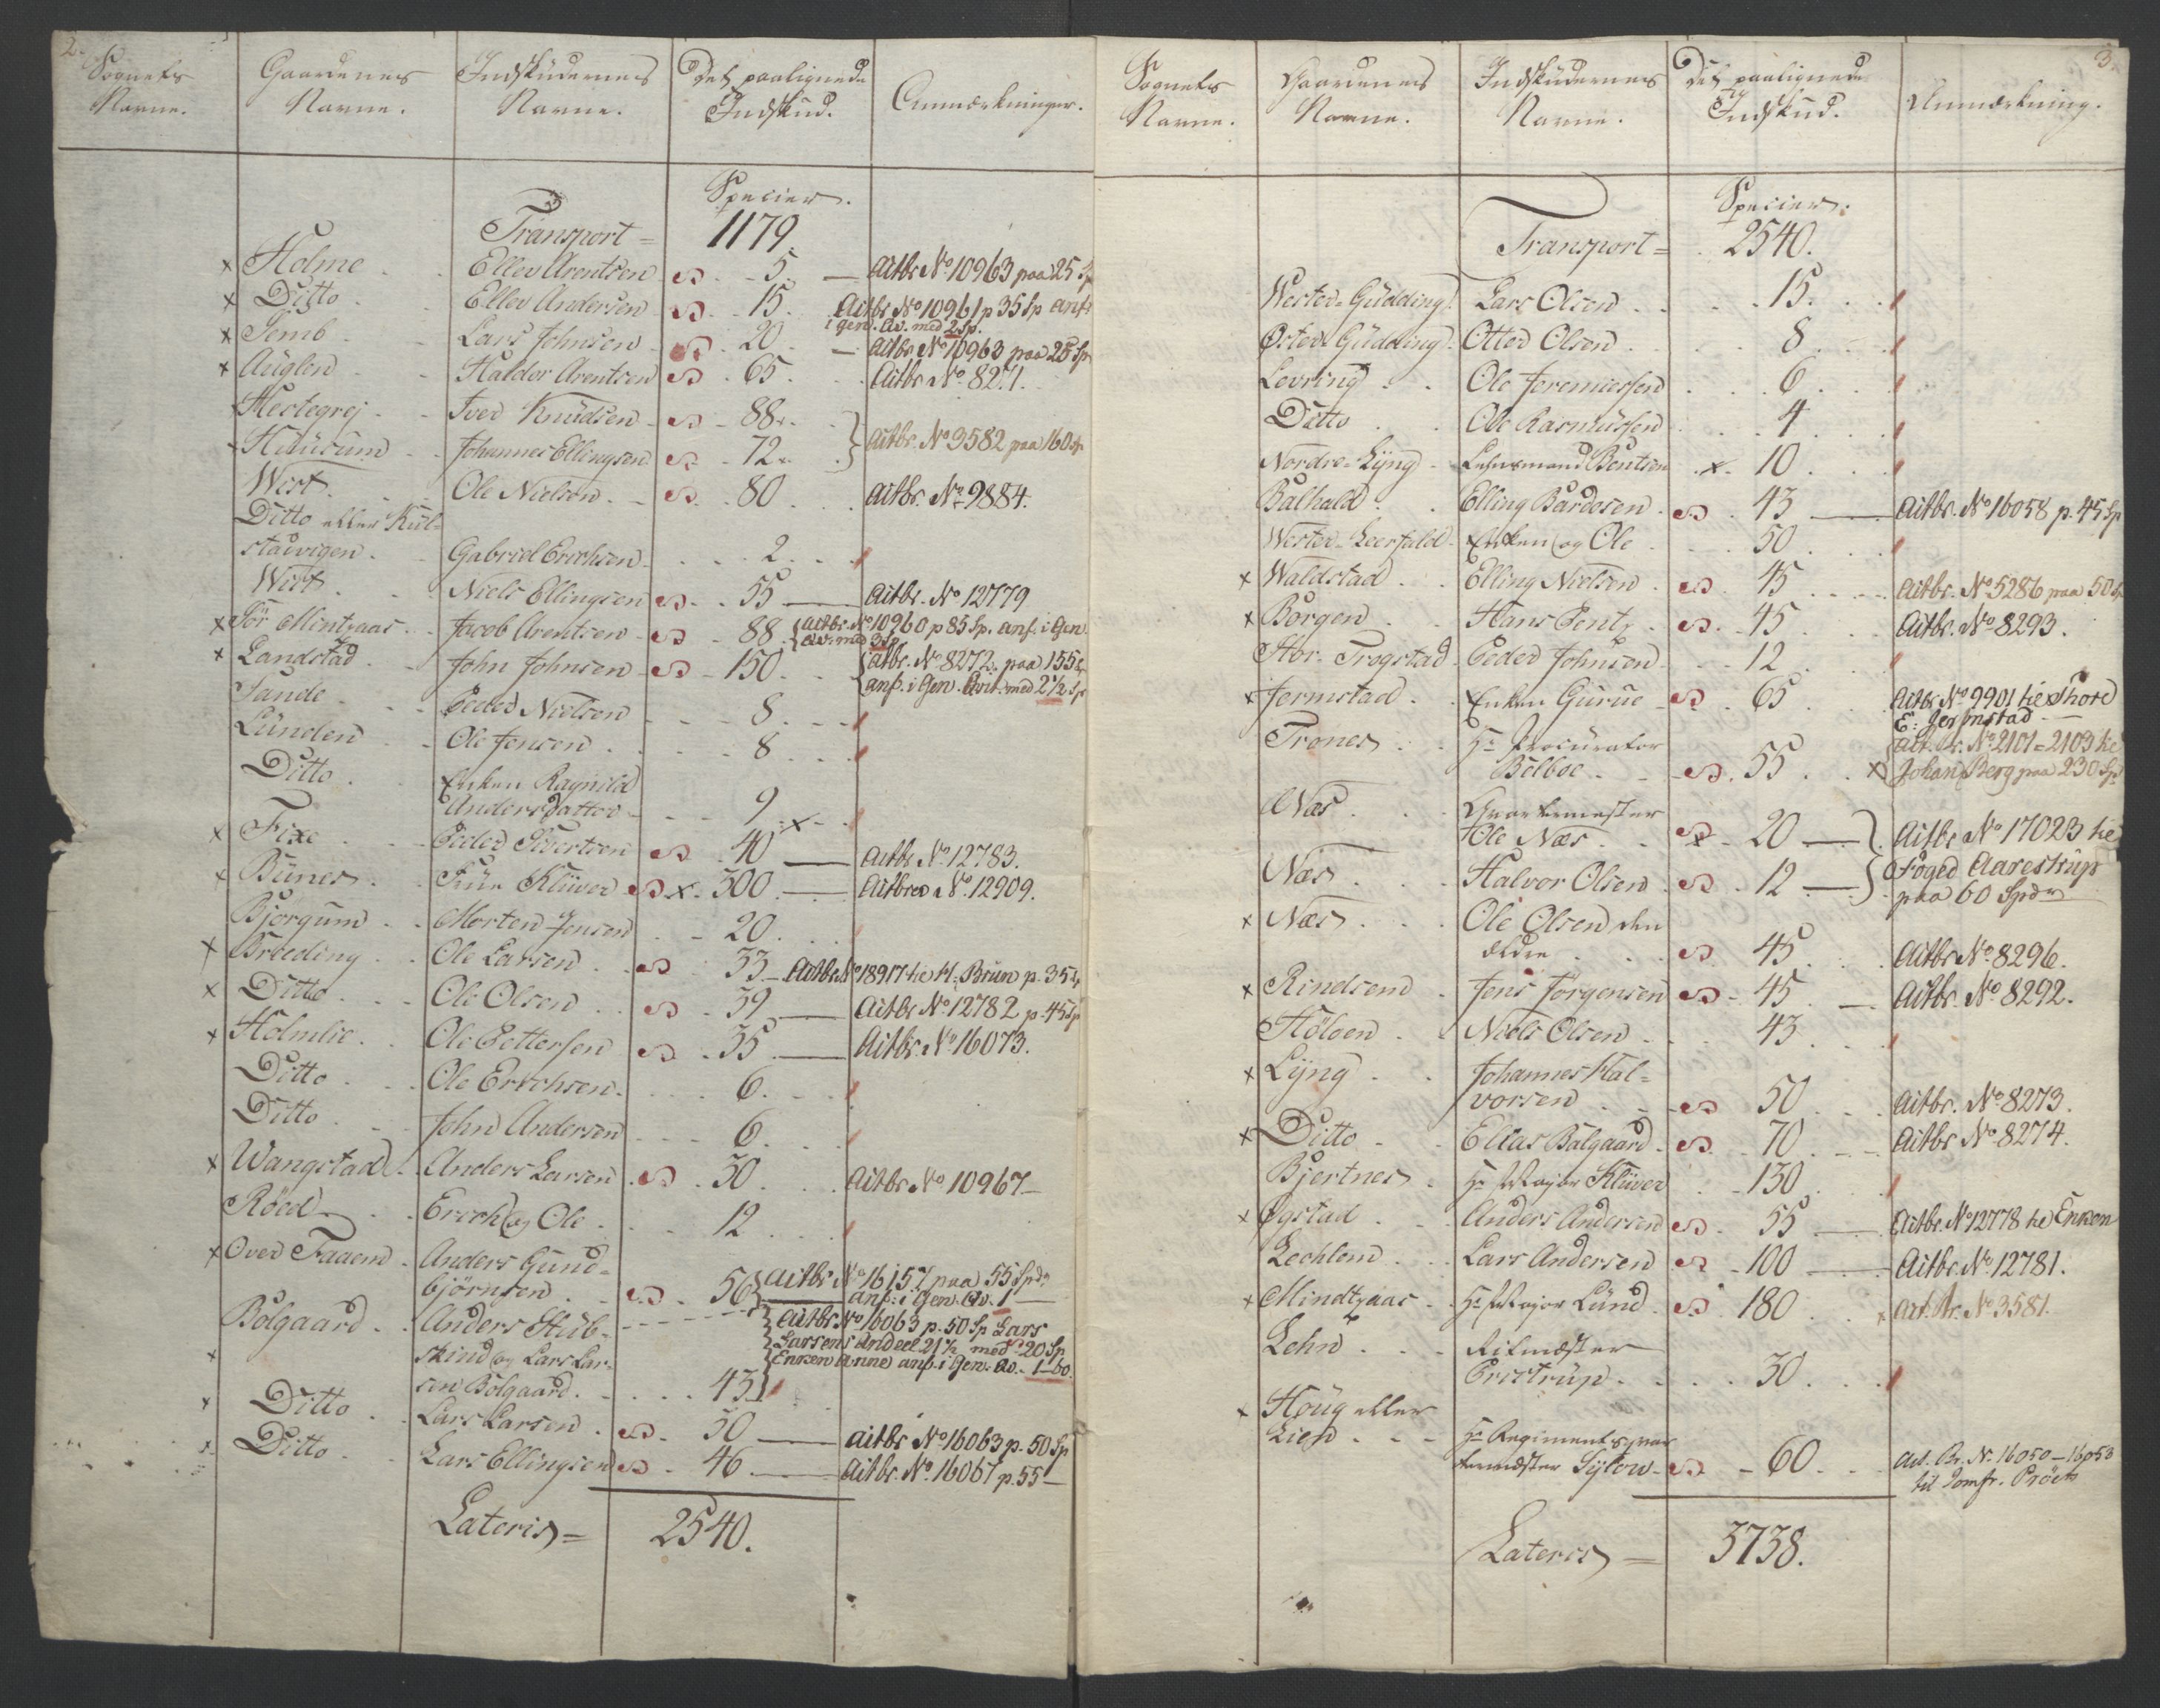 2.
Sognets Navne. Gaardenes Navne. Indskudernes Navne. Det paalignede Indskud. Anmærkninger.
Specier.
Transport = 1179.
x Holme . . Ellev Arentsen . 5. — Actbr No 10963 paa 25 Sp
x Ditto . . Ellev Andersen . 15. Actbr No 10961 p 35 Sp anf.
i gen. Qv. med 2 Sp.
x Jemb . . Lars Johnsen . 20 — Actbr No 10963 paa 25 Sp
x Auglen . . Haldor Arentsen . 65. Actbr No 8271.
x Hestegrej . . Iver Knudsen . 88.
x Huusum . . Johannes Ellingsen . 72. } Actbr. No 3582 paa 160 Sp
Wist . . Ole Nielsen . 80 . Actbr. No 9884.
Ditto eller Kul-
stadvigen . . Gabriel Erichsen . 2 . .
Wist . . Niels Ellingsen . 55 — Actbr. No 12779
x Sör Mintzaas . . Jacob Arentsen . 88 { Actbr No 10960 p 85 Sp. anf. i Gen.
Qv. med 3 Sp
x Landstad . . John Johnsen . 150 . { Actbr. No 8272. paa 155 Sp
anf. i Gen. Qvit. med 2 1/2 Sp
Sande . . Peder Nielsen . 8 . .
Lünden . . Ole Jensen . 8 . .
Ditto . . Enken Ragnild
Andersdatter . 9 . x .
x Fixe . . Peder Sivertsen . 40 — Actbr No 12783.
x Bünes . . Frue Klüver x 300 — Actbrev No 12909.
Bjørgum . . Morten Jensen . 20 .
x Breeding . . Ole Larsen . 33 — Actbr No 18917 til H: Brun p. 35 Sp
x Ditto . . Ole Olsen . 39 — Actbr No 12782 p. 45 Sp
x Holmlie . . Ole Pettersen . 35 — Actbr No 16073.
Ditto . . Ole Erichsen . 6 . .
Ditto . . John Andersen . 6 . .
x Wangstad . . Anders Larsen . 30 . Actbr No 10967 —
Røed . . Erich og Ole . 12 . .
x Over Faaem . Anders Gund-
björnsen . 56 { Actbr No 16157 paa 55 Spd
anf: i Gen. Qv. 1 —
Bolgaard . . Anders Stub- { Actbr. No 16063 p. 50 Sp Lars
x skind og Lars Lar- Larsens Andeel 21 1/2 med 20 Sp
Enken Anne anf. i Gen. Qv. — 1 - 60.
sen Bolgaard . 43 }
x Ditto . . Lars Larsen . 50 — Actbr No 16063 p. 50 Sp
x Ditto . . Lars Ellingsen . 46 — Actbr No. 16067 p. 55 —
Lateris = 2540.
3.
Sognets Navne. Gaardenes Navne. Indskudernes Navne. Det paalignede Indskud. Anmærkning.
Specier.
Transport = 2540.
Wester-Gudding . Lars Olsen . . 15. .
Øster Gudding . Otter Olsen . . 8 . .
Levring . . Ole Jeremiessen . 6 . .
Ditto . . Ole Rasmussen . 4 . .
Nordre-Lyng . Lehnsmand Bentsen x 10 . .
Balhald . . Elling Bardosen . 43 — Actbr. No 16058 p. 45 Sp
Wester-Leerfald . Enken og Ole . 50 . .
x Waldstad . . Elling Nielsen . 45 . Actbr. No 5286 paa 50 Sp
x Borgen . . Hans Pentz . 45 . Actbr. No 8293.
Stor-Trogstad . Peder Johnsen . 12 .
x Jermstad . . Enken Gurue . 65 . Actbr No 9901 til Thore
E. Jermstad —
Trones . . Hr Procurator
Bülboe . . 55 . x { Act. Br. No 2101 = 2103 til
Johan Berg paa 230 Sp
Næs . . Qvartermester
Ole Næs . x 20 — } Actbr No 17023 til
Næs . . Halvor Olsen . 12 — } Foged Aarestrup
paa 60 Spdr
x Næs . . Ole Olsen den
ældre . 45 . Actbr No 8296.
x Rindsem . Jens Jørgensen . 45 — Actbr. No 8292.
Stölben . . Niels Olsen . 43 .
x Lyng . . Johannes Hal-
vorsen . 50 . Actbr. No 8273.
x Ditto . . Elias Balgaard . 70 . Actbr No 8274.
Bjertnes . Hr Major Klüver . 130 .
x Øgstad . . Anders Andersen . 55 — Actbr. No 12778 til Enken
Lechlem . . Lars Andersen . 100 — Actbr. No 12781.
x Mindtzaas . Hr Major Lünd . 180 . x Act. Br. No 3581.
Lehn . . Ritmester
Eristrup . . 30 . .
x Houg eller
Lien . . . Hr Regimentsqvar-
termester Sylow . 60 . Act. Br. No. 16050 — 16053
til Jomfr. Pröetz
Lateris = 3738.